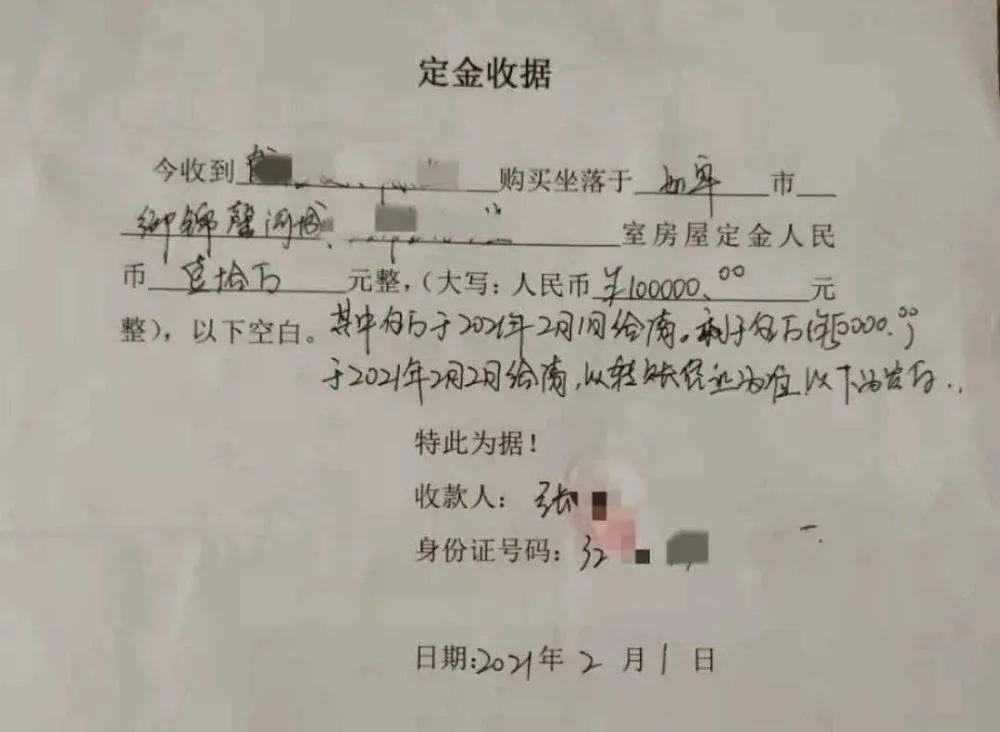 定金收据
今收到 购买坐落于 如皋 市
御锦馨 室房屋定金人民
币 壹拾万 元整,(大写:人民币 ¥100000.00 元
整),以下空白。其中伍万于2021年2月1日给清。剩于伍万(¥50000.00)
于2021年2月2日给清,以转账凭证为准 以下为空白..
特此为据!
收款人: 张
身份证号码: 32
日期:2021年 2 月 1 日